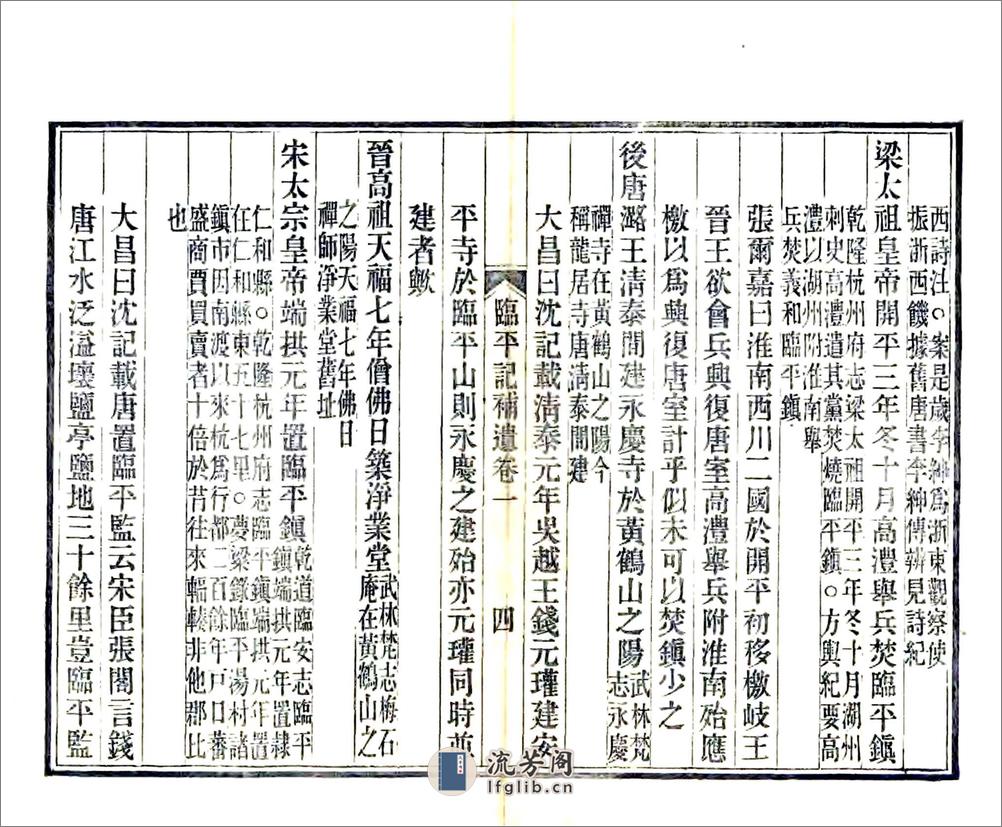 西詩注○案是歲李紳爲浙東觀察使
振浙西饑據舊唐書李紳傳辨見詩紀
梁太祖皇帝開平三年冬十月高澧舉兵焚臨平鎭
乾隆杭州府志梁太祖開平三年冬十月湖州
刺史高澧遣其黨焚燒臨平鎭○方輿紀要高
澧以湖州附淮南舉
兵焚義和臨平鎭
張爾嘉曰淮南西川二國於開平初移檄岐王
晉王欲會兵興復唐室高澧舉兵附淮南殆應
檄以爲興復唐室計乎似未可以焚鎭少之
後唐潞王清泰閒建永慶寺於黃鶴山之陽
武林梵
志永慶
禪寺在黃鶴山之陽今
稱龍居寺唐清泰閒建
大昌曰沈記載清泰元年吳越王錢元瓘建安
平寺於臨平山則永慶之建始亦元瓘同時並
建者歟
晉高祖天福七年僧佛日築淨業堂
武林梵志梅石
庵在黃鶴山之
之陽天福七年佛日
禪師淨業堂舊址
宋太宗皇帝端拱元年置臨平鎭
乾道臨安志臨平
鎭端拱元年置隷
仁和縣○乾隆杭州府志臨平鎭端拱元年置
在仁和縣東五十七里○夢粱錄臨平湯村諸
鎭市因南渡以來杭爲行都二百餘年戸口蕃
盛商賈買賣者十倍於昔往來輻輳非他郡比
也
大昌曰沈記載唐置臨平監云宋臣張閣言錢
唐江水泛溢壞鹽亭鹽地三十餘里豈臨平監
臨平記補遺卷一
四
流芳阁
lfglib.cn